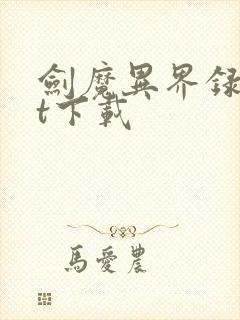 劍魔異界録
t下載
馬愛農